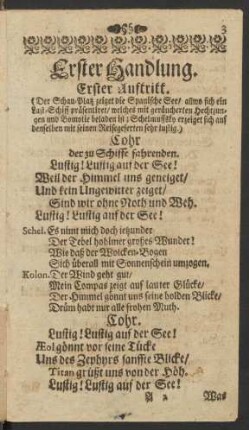 3
Erster Handlung.
Erster Aufftritt.
(Der Schau-Platz zeiget die Spanische See/ allwo sich ein
Last-Schiff präsentiret/ welches mit geräucherten Hechtzun-
gen und Bomolie beladen ist; Schelmuffsky erzeiget sich auf
denselben mit seinen Reisegefehrten sehr lustig.)
Cohr
der zu Schiffe fahrenden.
Lustig! Lustig auf der See!
Weil der Himmel uns geneiget/
Und kein Ungewitter zeiget/
Sind wir ohne Noth und Weh.
Lustig! Lustig auf der See!
Schel. Es nimt mich doch ietzunder
Der Tebel hohlmer grosses Wunder!
Wie daß der Wolcken-Bogen
Sich überall mit Sonnenschein umzogen.
Kolon. Der Wind geht gut/
Mein Compas zeigt auf lauter Glücke/
Der Himmel gönnt uns seine holden Blicke/
Drüm habt nur alle frohen Muth.
Cohr.
Lustig! Lustig auf der See!
Æol gönnt vor seine Tücke
Uns des Zephyrs sanffte Blicke/
Titan grüßt uns von der Höh.
Lustig! Lustig auf der See!
A 2 Was